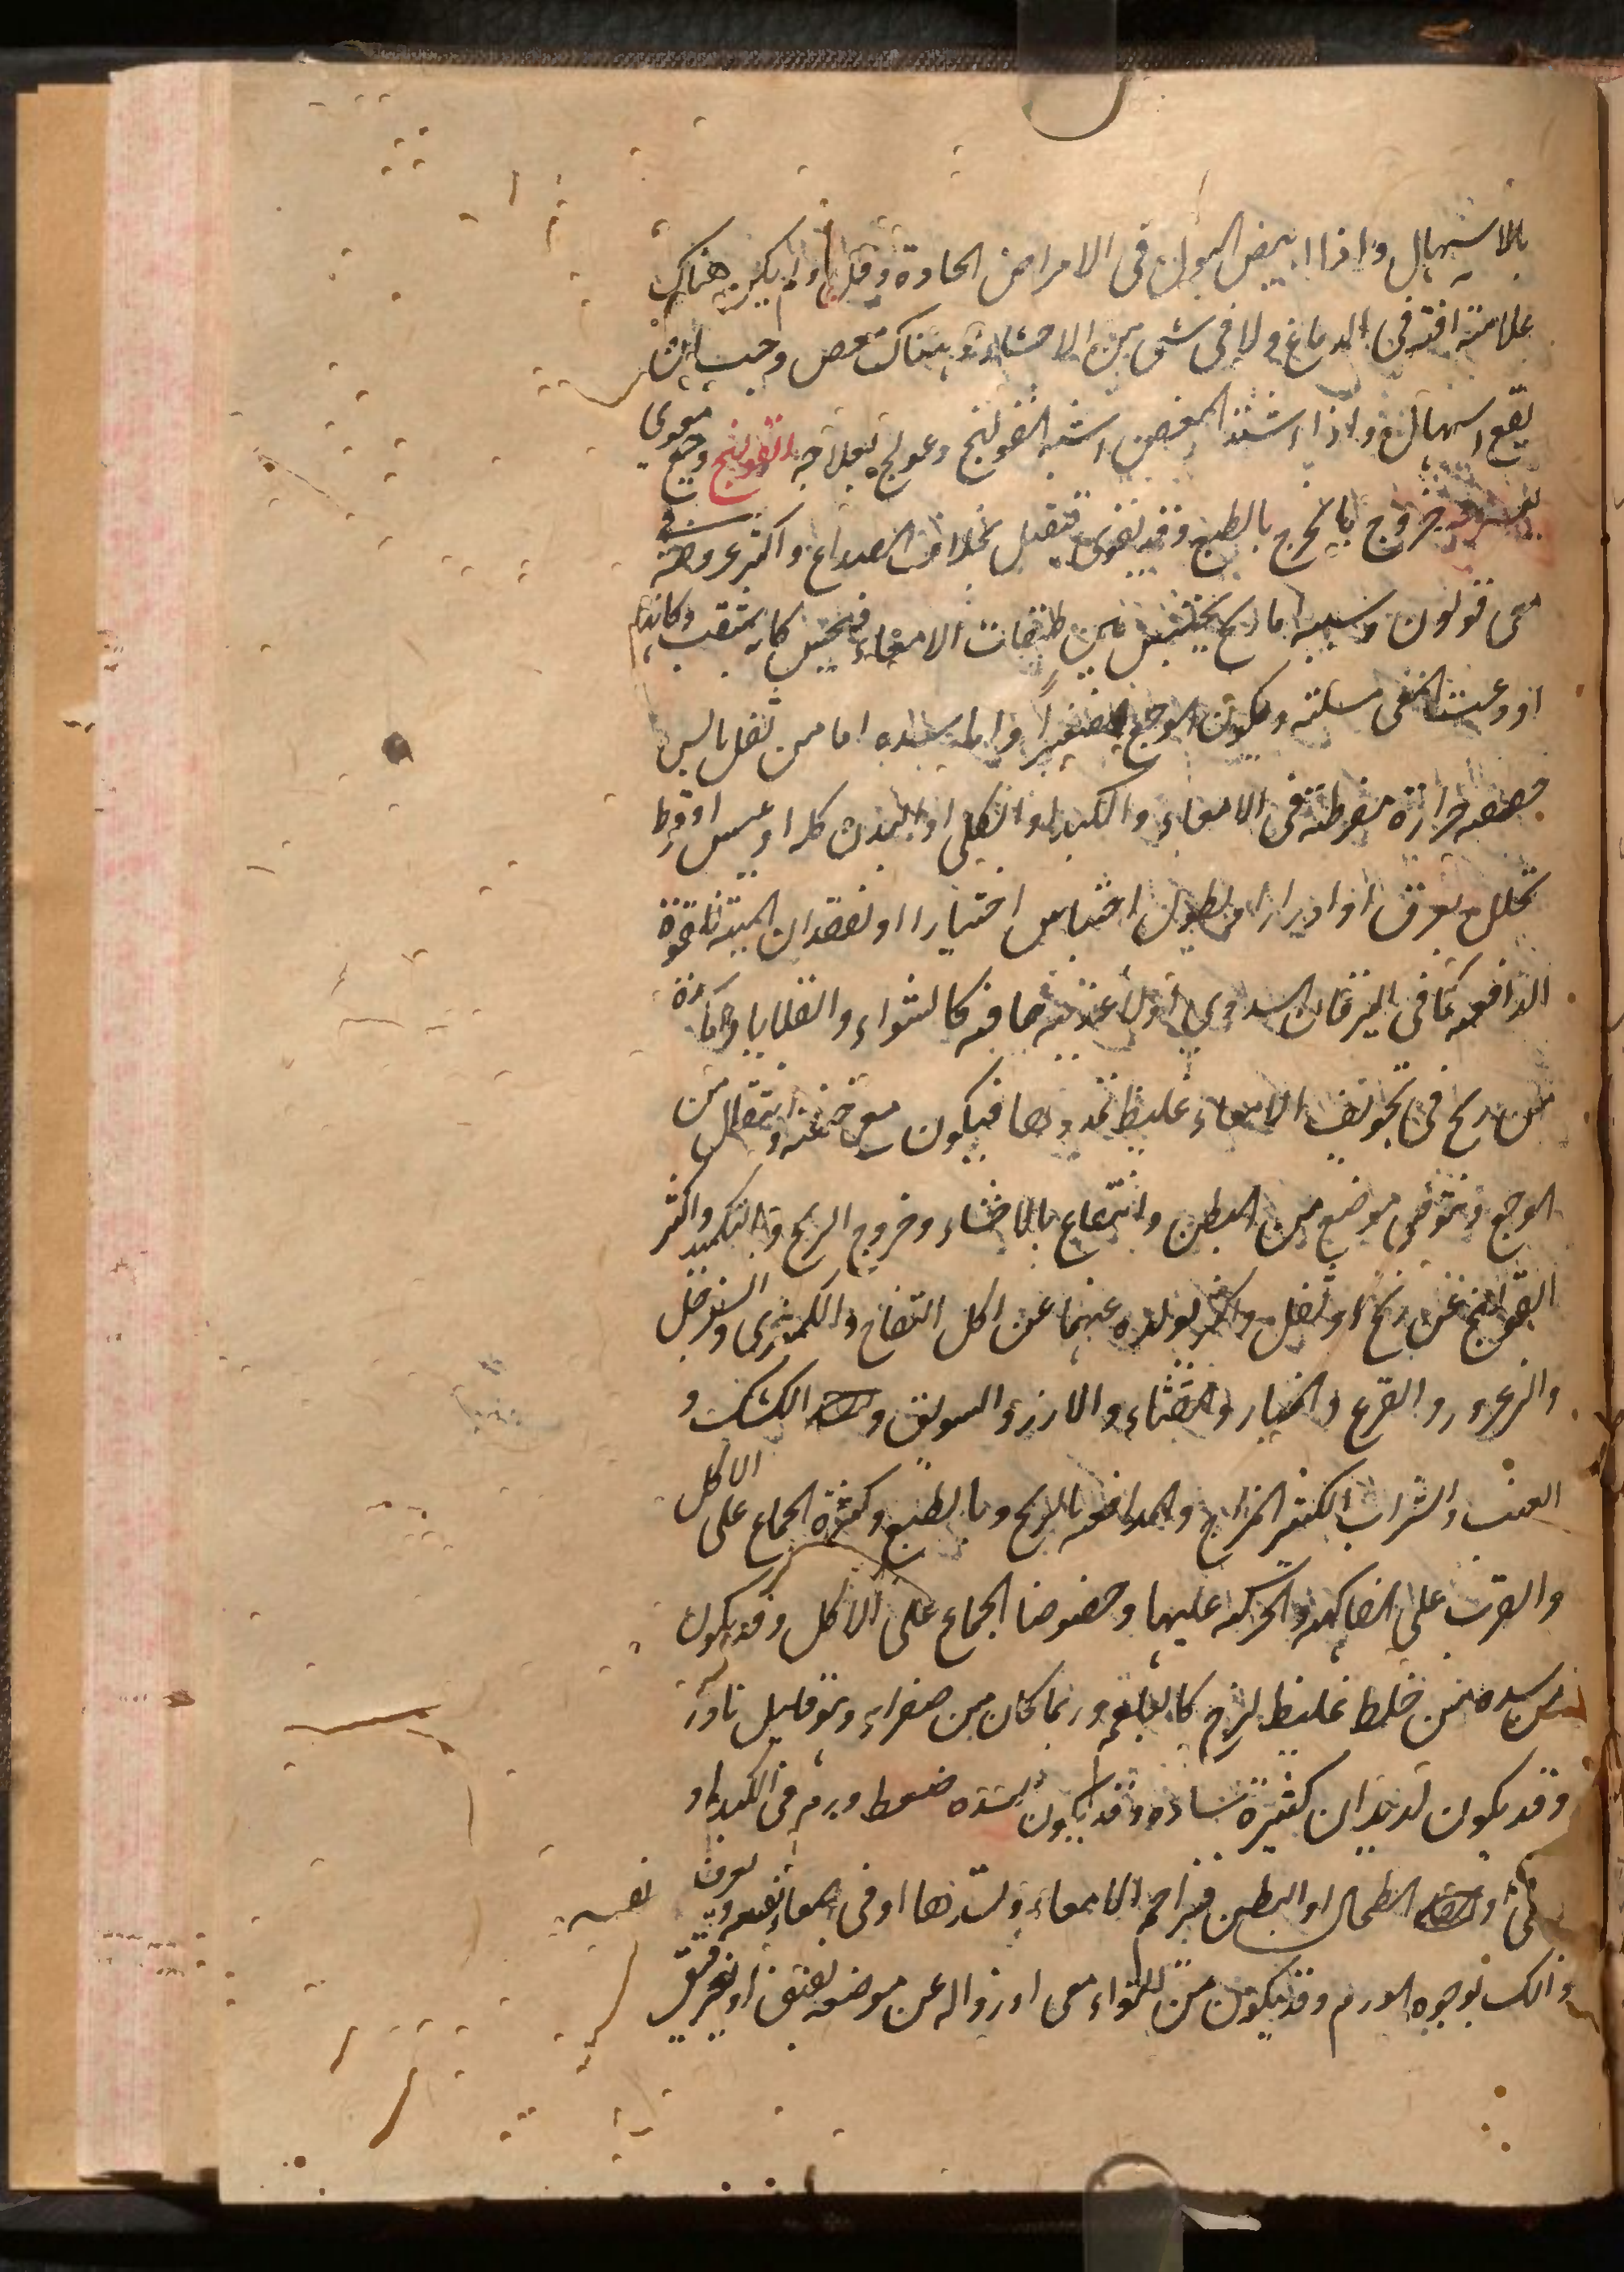 بالاسهال واذا ابيض البول فى الامراض الحادة وقل ولم يكن هناك
علامته افته فى الدماغ ولا فى شى من الاحشاء وهناك مغص وجب ان
يقع اسهال واذا اشتد المغص اشبه القولنج وعولج بعلاجه القولنج وجع معوى
يعسر معه خروج ما يخرج بالطبع وقد يقوى فيقتل بخلاف الصداع واكثر عروضه فى
معى قولون وسببه اما ريح يحتبس بين طبقات الامعاء فيحس كانه يثقب وكانه
اودعت المعى مسلته ويكون الوجع صغيرا واما سده اما من ثفل يابس
جففه حرارة مفرطته فى الامعاء والكبد او الكلى او البدن كله او يبس او فرط
تحلل بعرق او ادرار او طول احتباس اختيارا او لفقدان المنبه للقوة
الدافعه كما فى اليرقان السددى او لاغذيته جافه كالشواء والقلايا واما سدة
من ريح فى تجويف الامعاء غليظ تمددها فيكون مع خفته وانتقال من
الوجع ونتو فى موضع من البطن وانتفاع بالاحشاء وخروج الريح والتكميد واكثر
القولنج عن ريح او ثفل واكثر تولده عنهما عن اكل التفاح والكمثرى والسفرجل
والزعرور والقرع والخيار والقثاء والارز والسويق و الكشك و
العنب والشراب الكثير المزاج والمدافعه بالريح وبالطبع وكثرة الجماع على الاكل
والشرب على الفاكهه والحركه عليها وخصوصا الجماع على الاكل وقد يكون
عن سده من خلط غليظ لزج كالبلغم وربما كان من صفراء وهو قليل نادر
وقد يكون لديدان كثيرة ساده وقد يكون لشده ضغط ورم فى الكبد او
فى الطحال او البطن فيزاحم الامعاء ويسدها او فى المعاء نفسه ويعرف
ذالك بوجوه الورم وقد يكون من التواء معى او زواله عن موضعه لفتق او تمزيق
نفسه